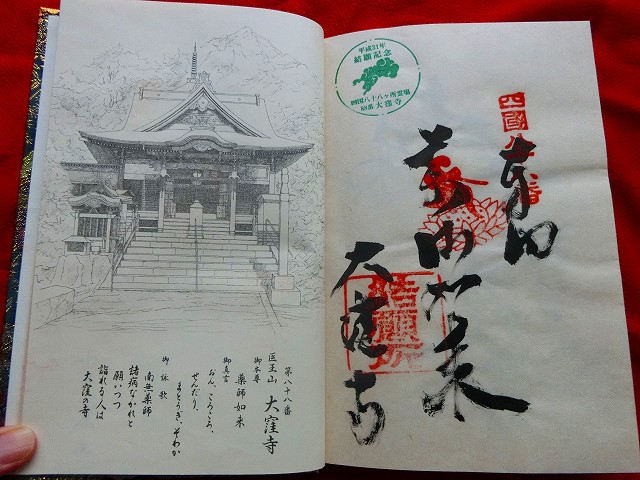 第八十八番
医王山 大窪寺
御本尊
薬師如来
御真言
おん、ころころ、
せんだり、
まとうぎ、そわか
御詠歌
南無薬師
諸病なかれと
願いつつ
詣れる人は
大窪の寺
平成31年
結願記念
四国八十八ヶ所霊場
88番 大窪寺
奉納
薬師如来
大窪寺
結願所